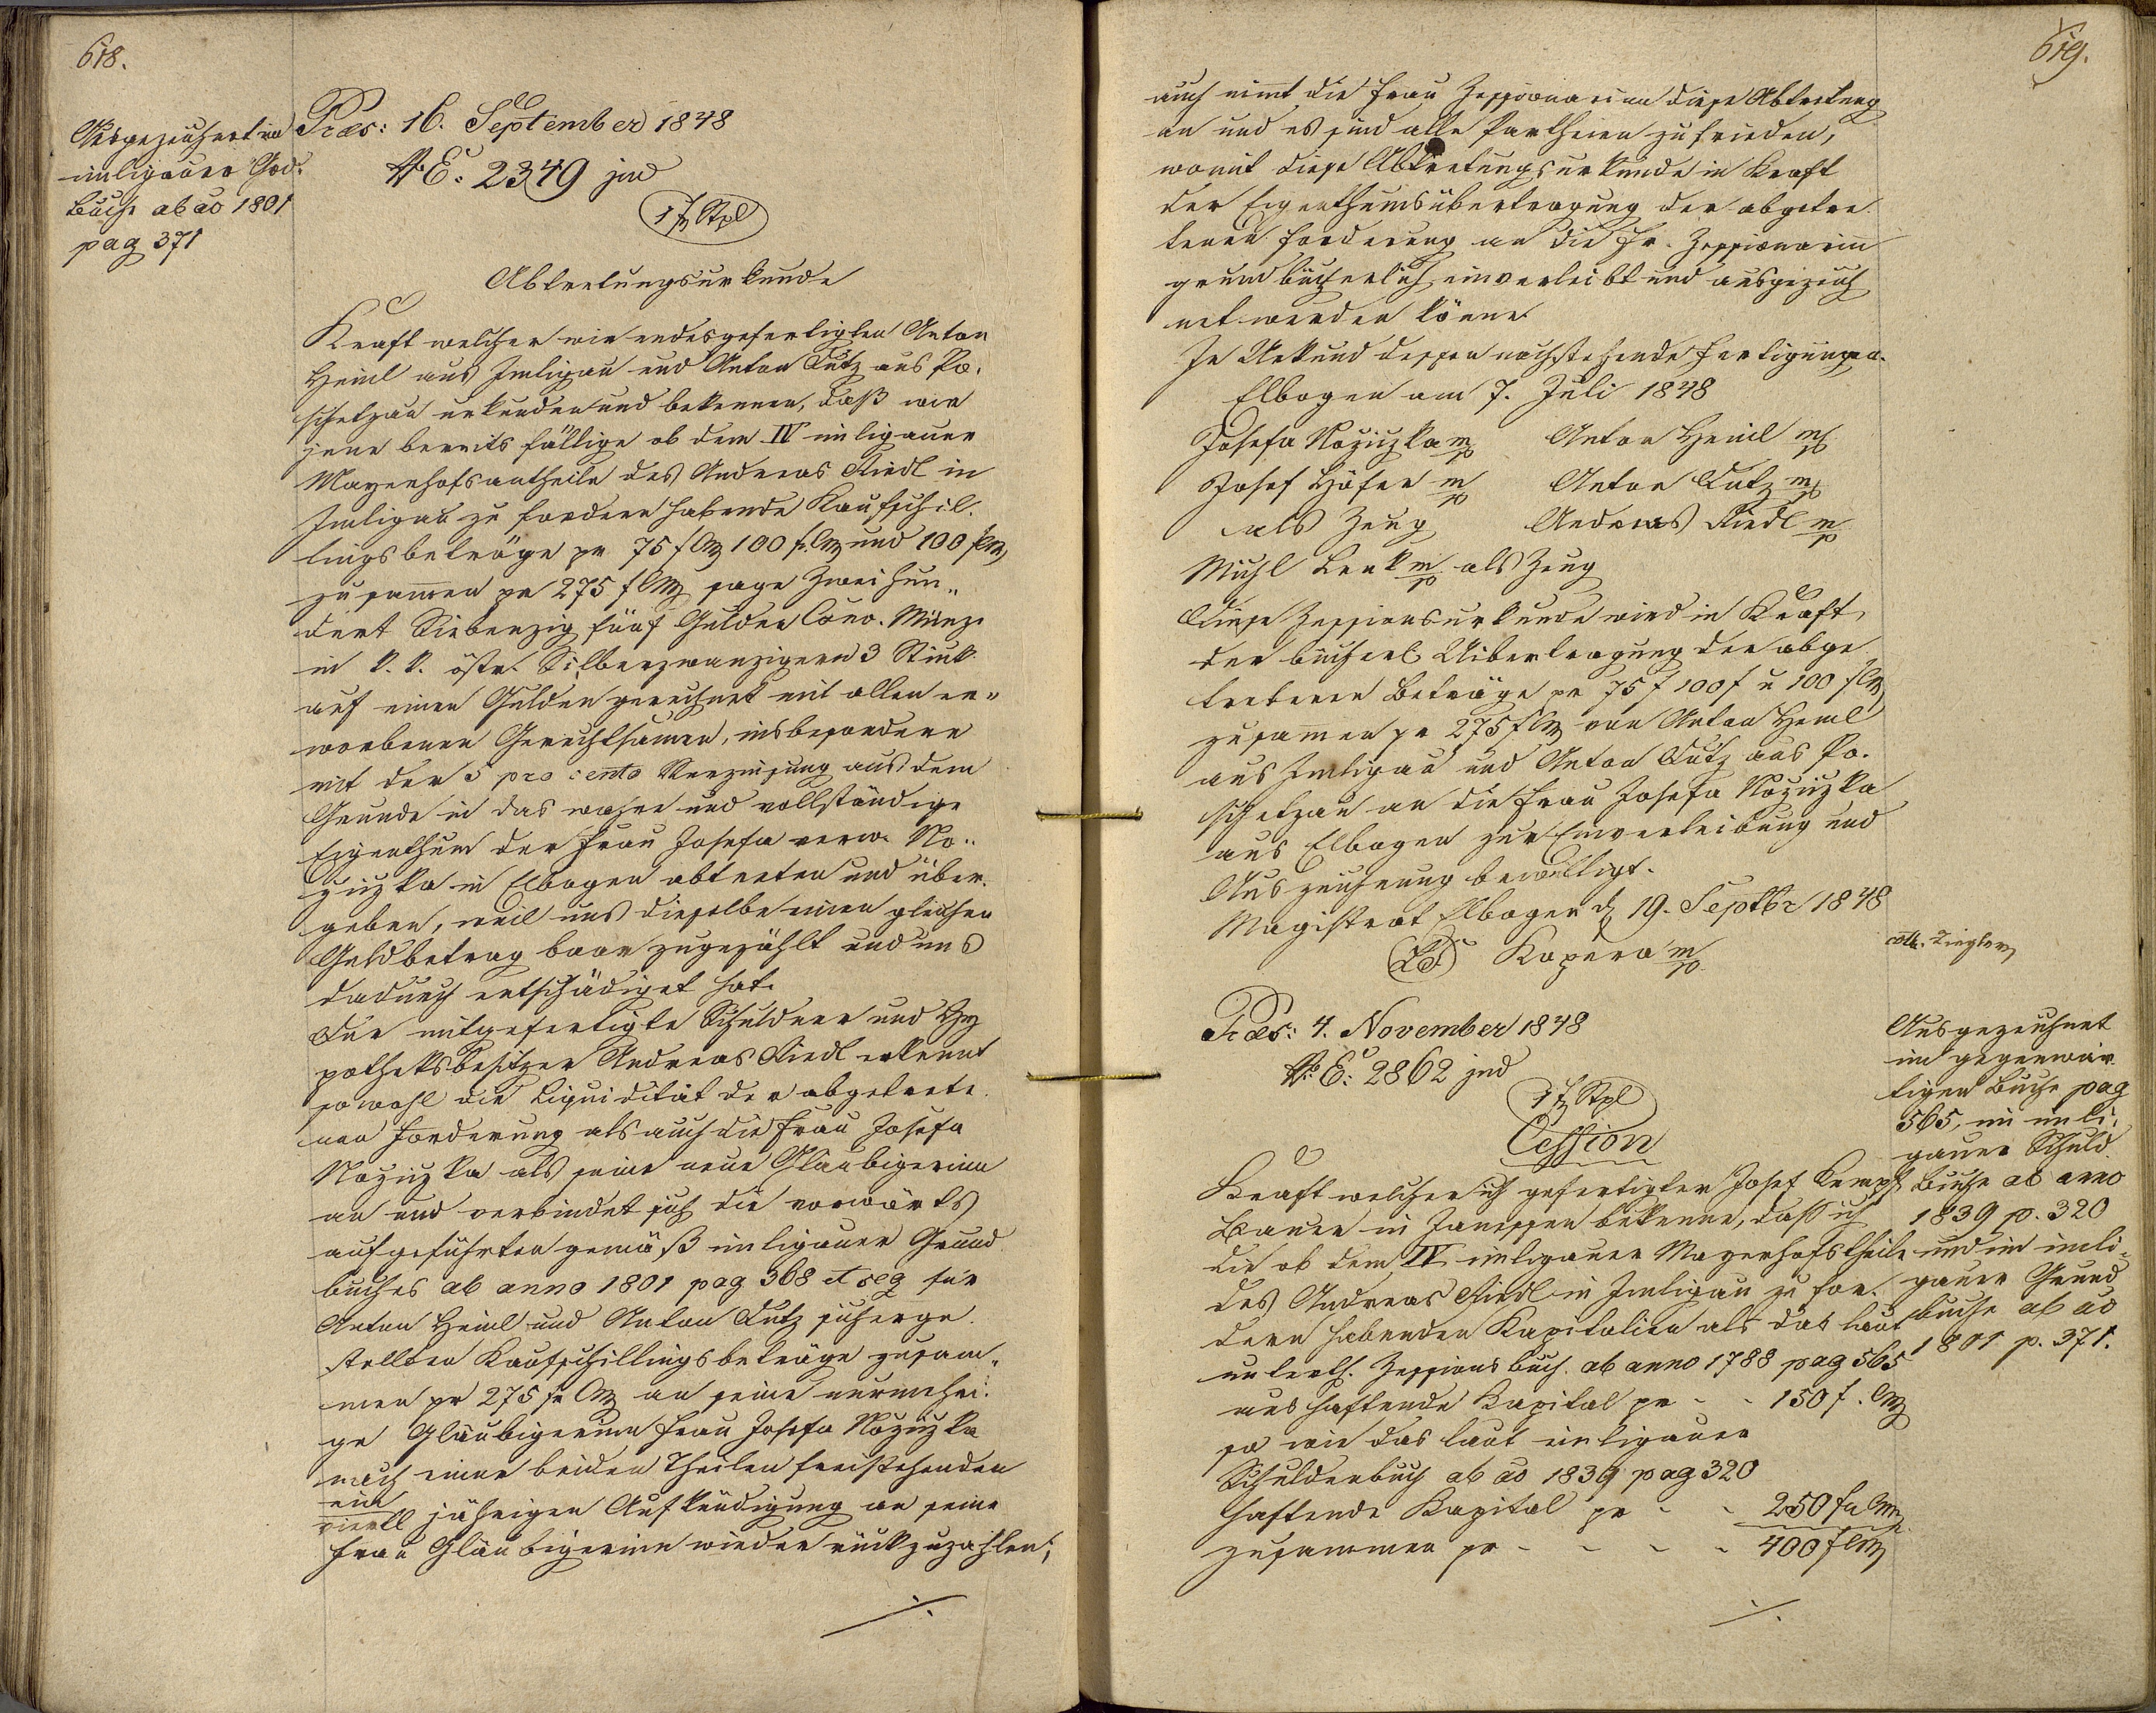 618.
Ausgezeichnet im
imligauer Grd.
Buche ab ao 1801
pag 371
Præs: 16. September 1848
NE: 2349 jud
1 f Stpl
Abtretungsurkunde
Kraft welcher wir endesgefertigten Anton
Heinl aus Imligau und Anton Lutz aus Po-
schetzau urkunden und bekennen, daß wir
jene bereits fällige ob dem IV imligauer
Mayerhofsantheile des Andreas Riedl in
Imligau zu fordern habende Kaufschil-
lingsbeträge pr 75 f CM 100 f CM und 100 f CM
zusamen pr 275 f CM sage Zweihun-
dert Siebenzig fünf Gulden Conv. Münze
in k. k. östr. Silberzwanzigern 3 Stück
auf einen Gulden gerechnet mit allen er-
worbenen Gerechtsamen, insbesondere
mit der 5 pro cento Verzinsung aus dem
Grunde in das wahre und vollständige
Eigenthum der Frau Josefa verw. No-
ziczka in Elbogen abtreten und über-
geben, weil uns dieselbe einen gleichen
Geldbetrag baar zugezählt und uns
dadurch entschädiget hat.
Der mitgefertigte Schuldner und Hy
potheksbesitzer Andreas Riedl erkennt
sowohl die Liquidität der abgetrete-
nen Forderung als auch die Frau Josefa
Noziczka als seine neue Gläubigerinn
an und verbindet sich die vorwärts
aufgeführten gemäß imligauer Grund
buches ab anno 1801 pag 368 et seq für
Anton Heinl und Anton Lutz sicherge-
stellten Kaufschillingsbeträge zusam-
men pr 275 fr CM an seine nunmehri-
ge Gläubigerinn Frau Josefa Noziczka
nach einer beiden Theilen freistehenden
ein
viertl jährigen Aufkündigung an seine
Frau Gläubigerinn wieder rückzuzahlen;
./.
619.
auch nimt die Frau Zessionarinn diese Abtretung
an und es sind alle Partheien zufrieden,
womit diese Abtretungsurkunde in Kraft
der Eigenthumsübertragung der abgetre-
tenen Forderung an die Fr. Zessionarinn
grundbücherlich einverleibt und ausgezeich
net werden könne.
In Urkund dessen nachstehende Fertigungen.
Elbogen am 7. Juli 1848
Josefa Noziczka mp Anton Heinl mp
Josef Höfer mp Anton Lutz mp
als Zeug Andreas Riedl mp
Michl Lenk mp als Zeug
Diese Zessionsurkunde wird in Kraft
der bücherl. Uibertragung der abge
tretenen Beträge pr 75 f 100 f u 100 f CM
zusammen pr 275 f CM von Anton Heinl
aus Imligau und Anton Lutz aus Po-
schetzau an die Frau Josefa Noziczka
aus Elbogen zur Einverleibung und
Auszeichnung bewilligt.
Magistrat Elbogen d 19. Septbr 1848
LS Kopera mp
coll. Ziegler
Præs: 4. November 1848
NE: 2862 jud
1 f Stpl
Cession
Kraft welcher ich gefertigter Josef Kempf
Bauer in Janessen bekenne, daß ich
die ob dem IV imligauer Mayerhofstheile
des Andreas Riedl in Imligau zu for-
dern habenden Kapitalien als das laut
unterth. Zessionsbuch ab anno 1788 pag 565
aushaftende Kapital pr - - 150 f. CM
so wie das laut imligauer
Schuldenbuch ab ao 1839 pag 320
haftende Kapital pr - - 250 fr CM
zusammen pr - - - - 400 f CM
./.
Ausgezeichnet
im gegenwär
tigen Buche pag
565, im imli-
gauer Schuld
Buche ab anno
1839 p. 320
und im imli-
gauer Grund
buche ab ao
1801 p. 371.